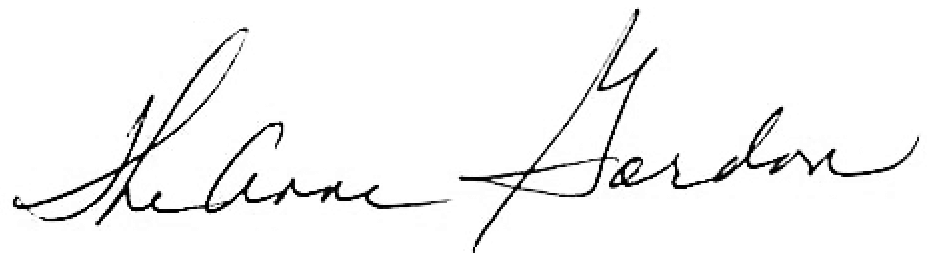 SheAnne Gordon